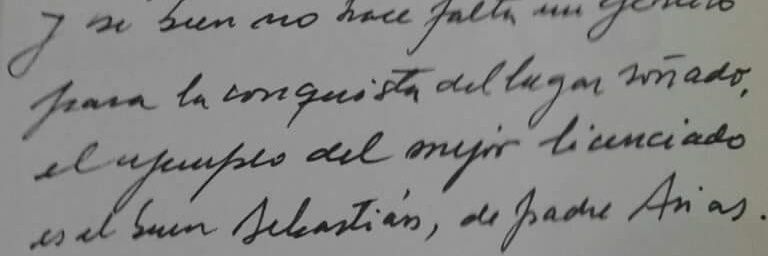 y si bien no hace falta un género
para la conquista del lugar soñado,
el ejemplo del mejor licenciado
es el buen Sebastián, de padre Arias.